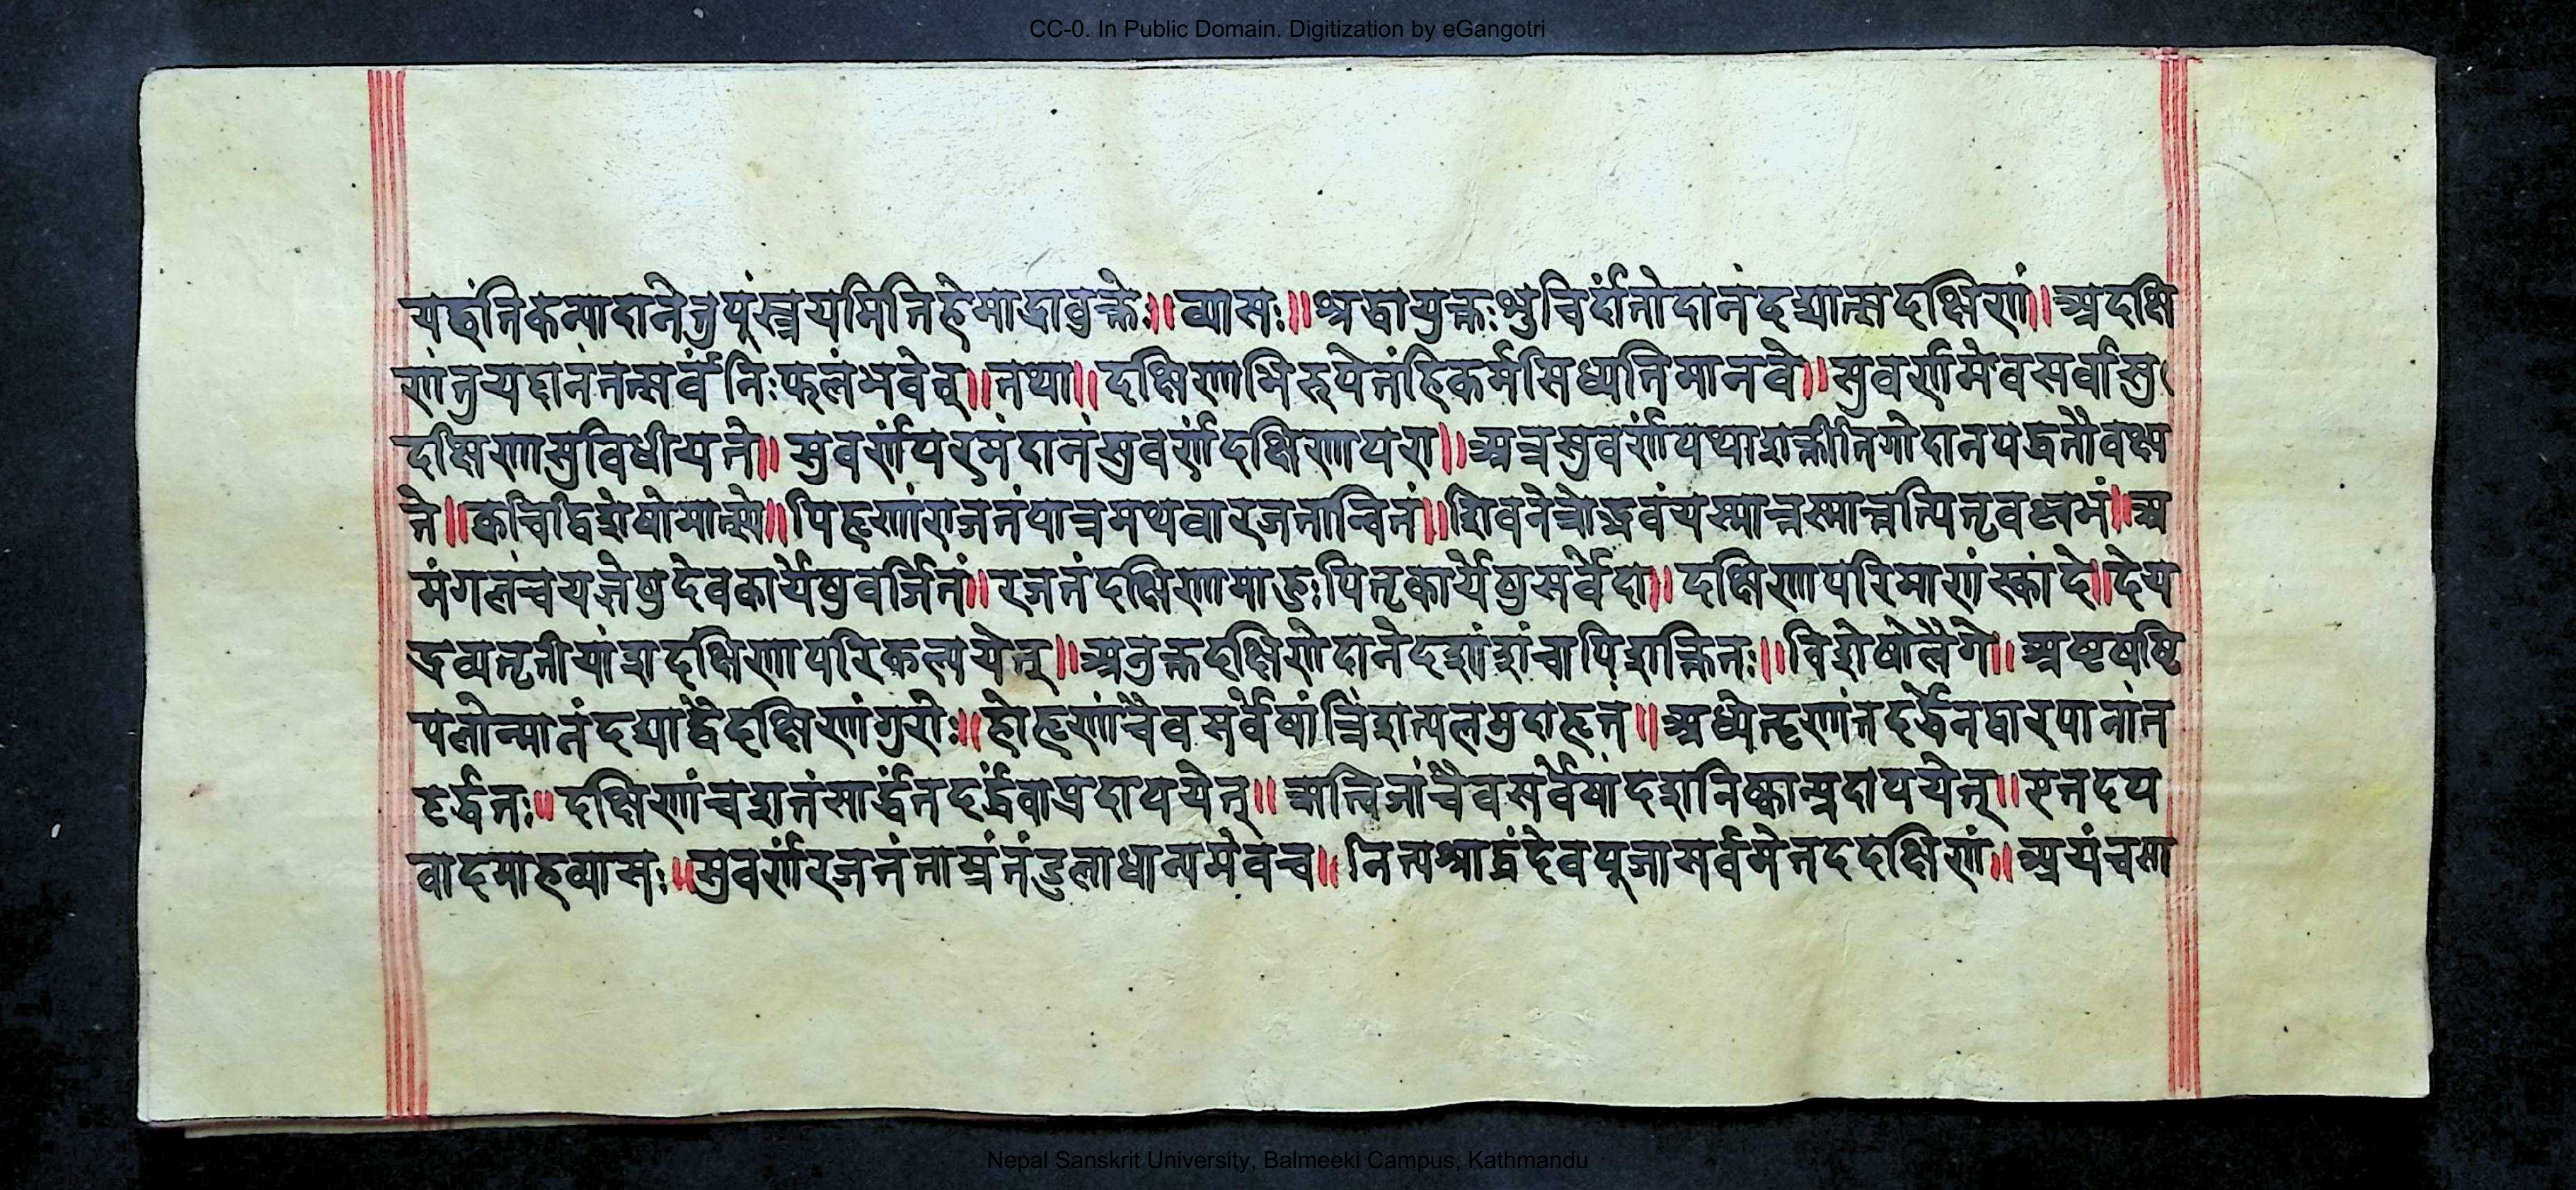 CC-0. In Public Domain. Digitization by eGangotri
यछंति कन्यादाने तु पूंस्त्रयमिति हेमाद्रावुक्ते॥ व्यासः॥ श्रद्धायुक्तः शुचिर्दांतो दानं दद्यात्सदक्षिणां॥ अदक्षि
णं तु यद्दानं तत्सर्वं निःफलं भवेत्॥ तथा॥ दक्षिणाभिरुपेतं हि कर्म सिध्यति मानवे॥ सुवर्णमेव सर्वासु
दक्षिणासु विधीयते॥ सुवर्णं परमं दानं सुवर्णं दक्षिणा परा॥ अत्र सुवर्णं यथाशक्तीति गोदानपद्धतौ वक्ष्य
ते॥ क्वचिद्विशेषो मात्स्ये॥ पितॄणां राजतं पात्रमथवा रजतान्वितं॥ शिवनेत्रोद्भवं यस्मात्तस्मात्तत्पितृवल्लभं॥ अ
मंगलं च यज्ञेषु देवकार्येषु वर्जितं॥ रजतं दक्षिणामाहुः पितृकार्येषु सर्वदा॥ दक्षिणापरिमाणं स्कांदे॥ देय
द्रव्यतृतीयांश दक्षिणा परिकल्पयेत्॥ अनुक्तदक्षिणे दाने दशांशं वापि शक्तितः॥ विशेषो लैंगे॥ अष्टषष्टि
पलोन्मानं दद्याद्वै दक्षिणां गुरोः॥ होतॄणां चैव सर्वेषां त्रिंशत्पलमुदाहृतं॥ अध्येतॄणां तदर्द्धेन द्वारपानां त
दर्द्धतः॥ दक्षिणां च शतं सार्द्धं तदर्द्धं वा प्रदापयेत्॥ ऋत्विजां चैव सर्वेषां दश निष्कान्प्रदापयेत्॥ एतदप
वादमाह व्यासः॥ सुवर्णं रजतं ताम्रं तंडुला धान्यमेव च॥ नित्यश्राद्धं देवपूजा सर्वमेतददक्षिणं॥ अयं च सा
Nepal Sanskrit University, Balmeeki Campus, Kathmandu